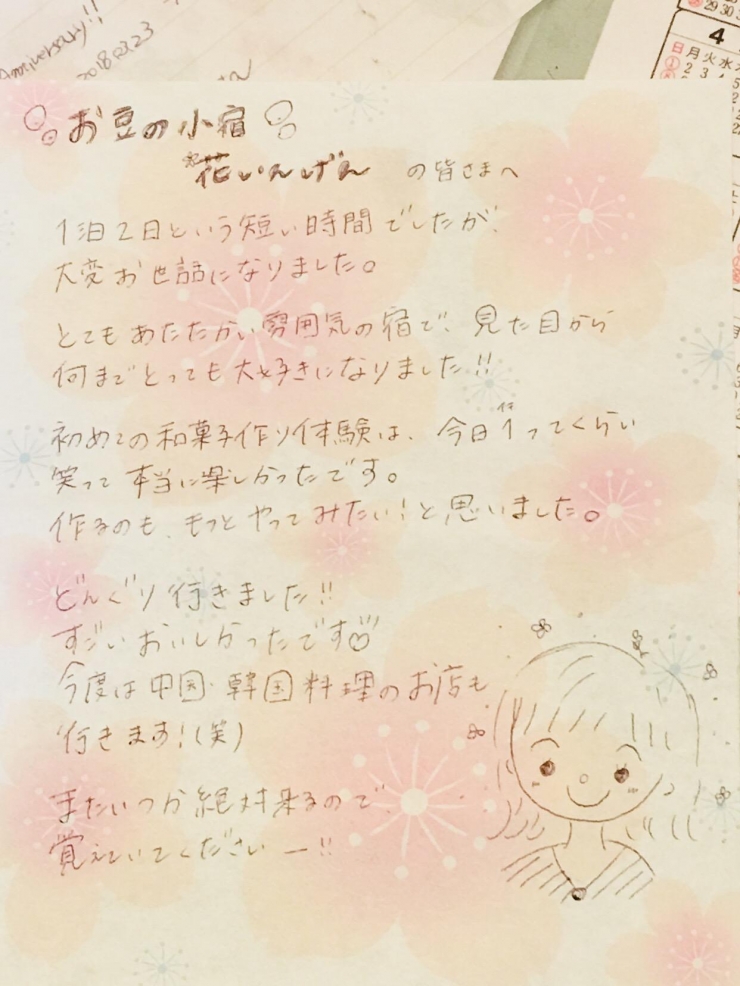 Anniversary!!
2018.03.23
29 30
4
日 月 火 水
1 2 3 4
お豆の小宿
花いんげん の皆さまへ
1泊2日という短い時間でしたが、
大変お世話になりました。
とてもあたたかい雰囲気の宿で、見た目から
何までとっても大好きになりました!!
初めての和菓子作り体験は、今日1ってくらい
イチ
笑って本当に楽しかったです。
作るのも、もっとやってみたい!と思いました。
どんぐり行きました!!
すごいおいしかったです
今度は中国・韓国料理のお店も
行きます!(笑)
またいつか絶対来るので、
覚えていてくださいー!!